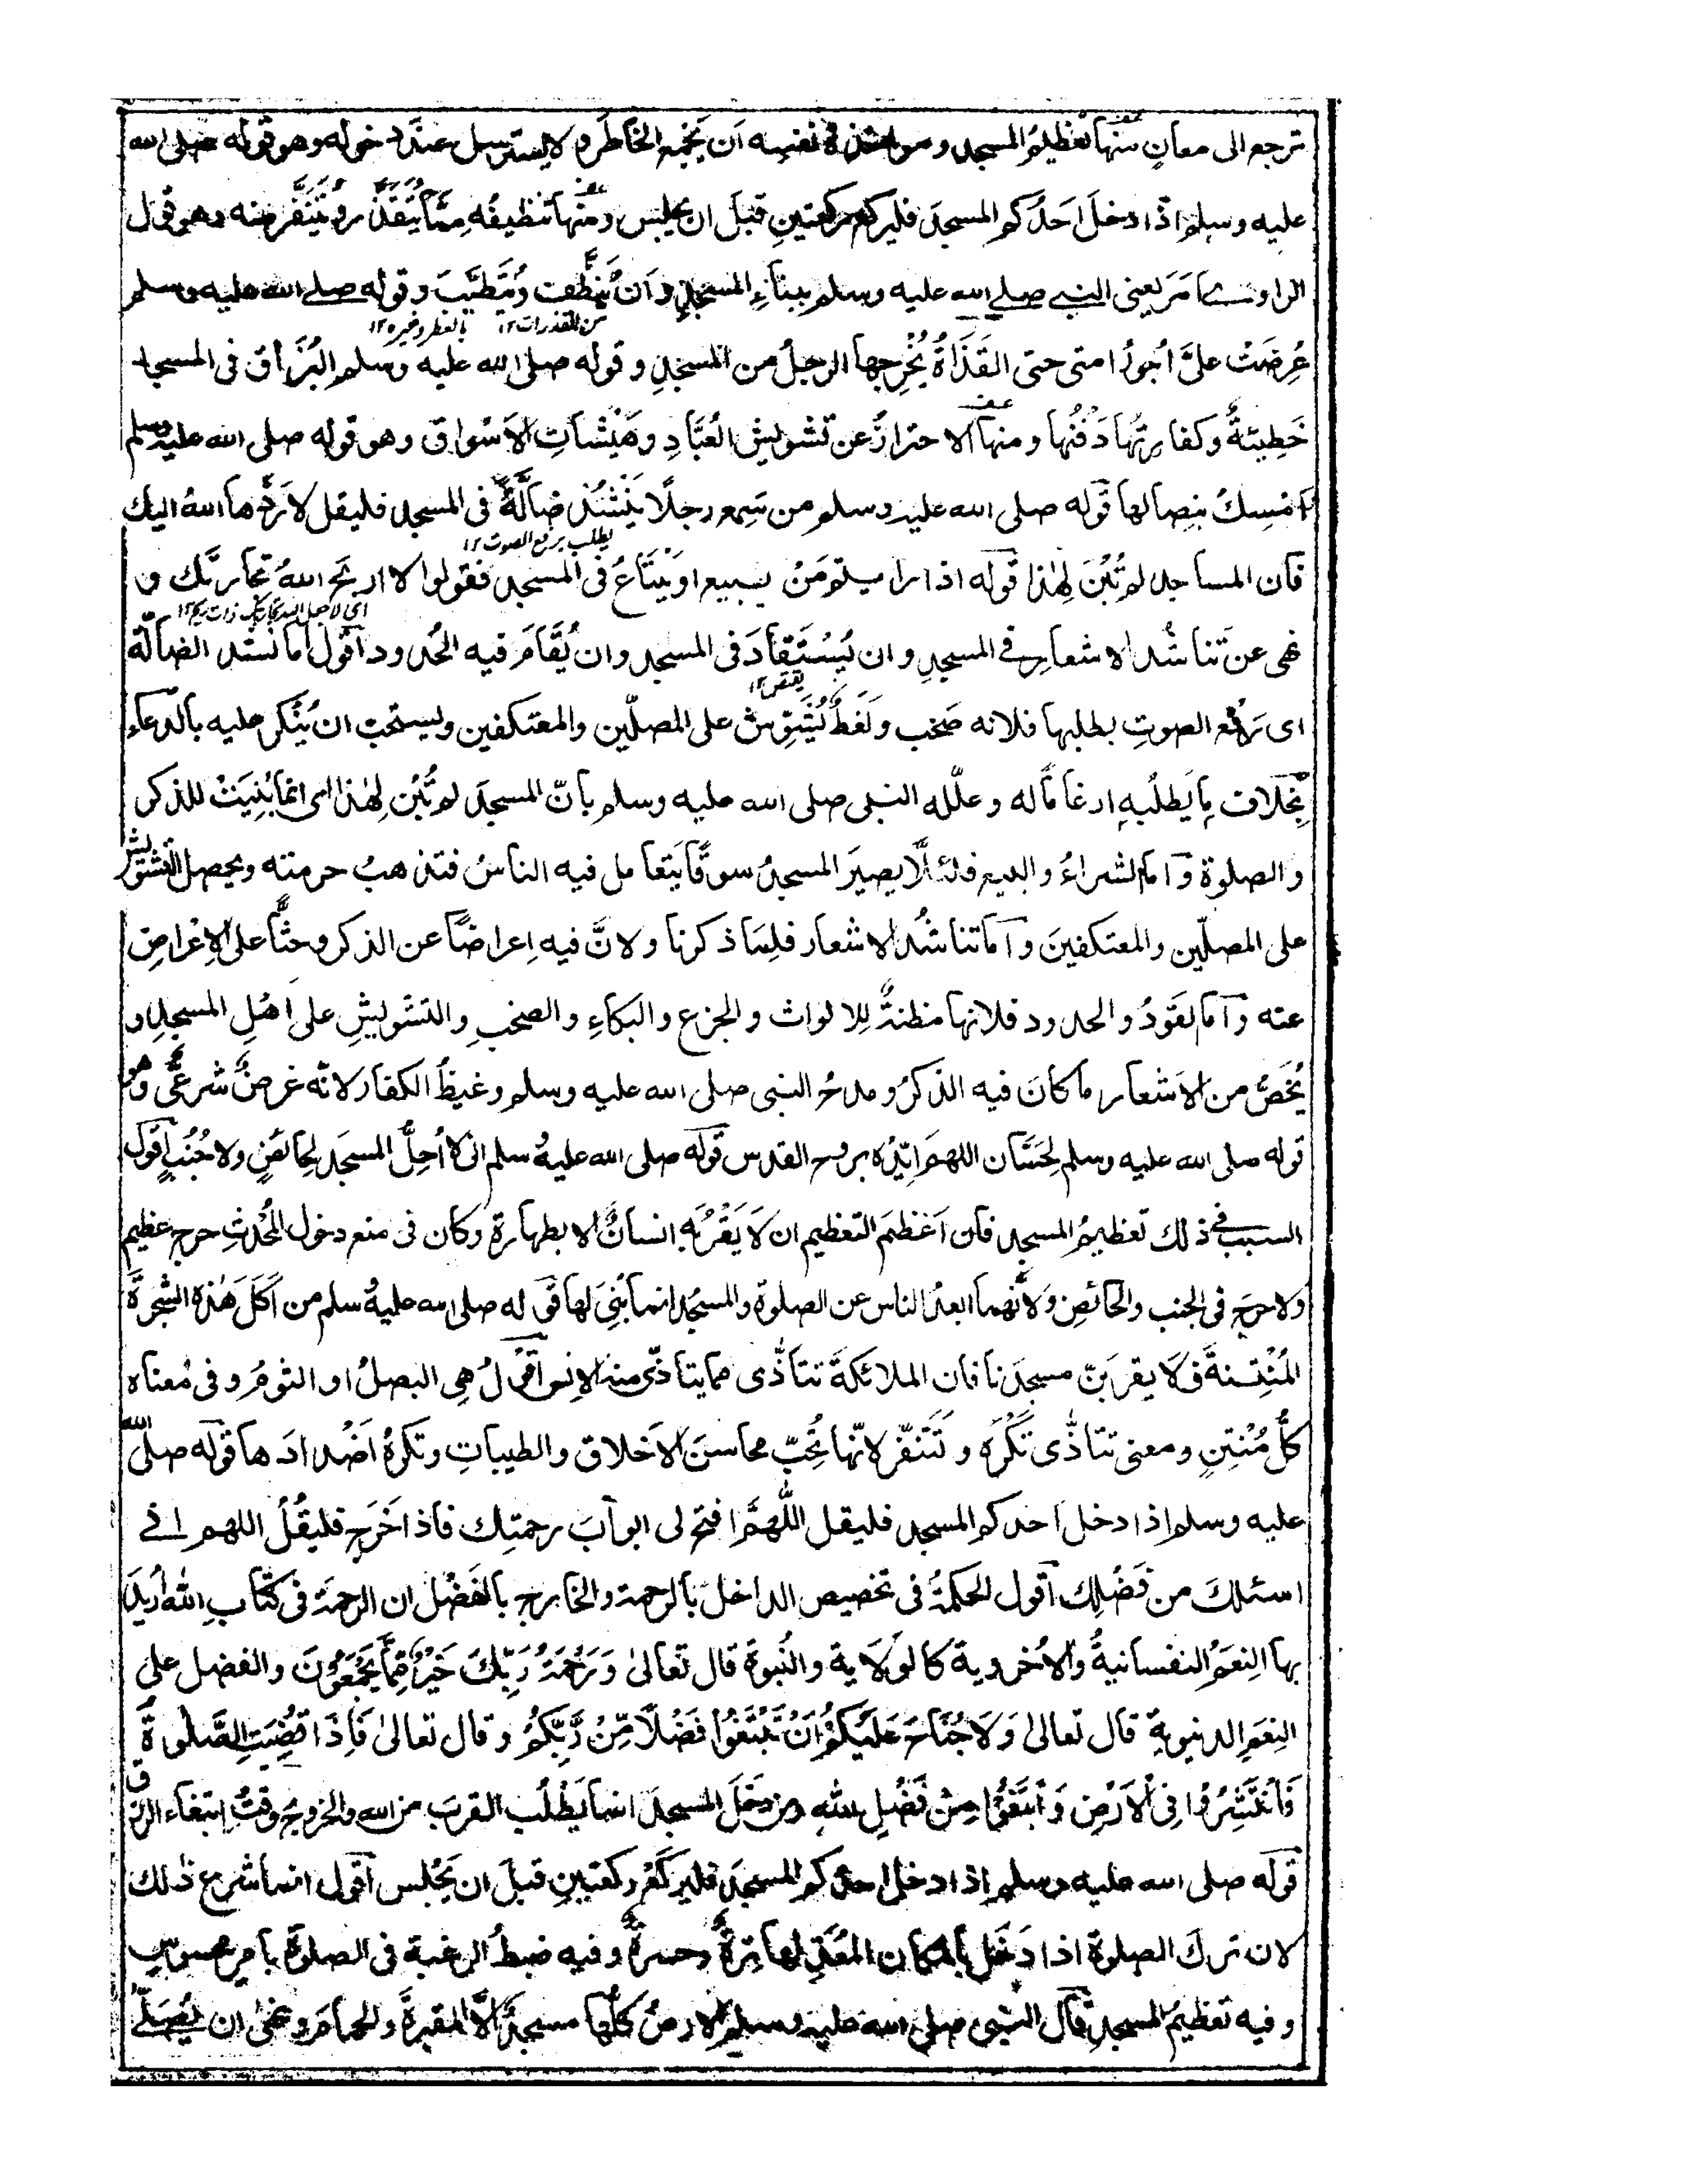 ترجع الى معانٍ منها تعظيمُ المسجد ومواخذة نفسه ان يجمع الخاطر ولا يسترسل عند دخوله وهو قوله صلى الله
عليه وسلم اذا دخلَ احَدُكم المسجدَ فليركع ركعتينِ قبلَ ان يجلس ومنها تنظيفُه مِمّا يُتَقَذَّرُ ويُتَنَفَّرُ منه وهو قول
الراوي امَرَ يعنى النبي صلى الله عليه وسلم ببناءِ المسجدِ وَاَنْ يُنَظَّفَ ويُطَيَّبَ وقوله صلى الله عليه وسلم
من القذرات١٢ بالعطر وغيره١٢
عُرِضَتْ علىَّ اُجورُ امتى حتى القَذَاةُ يُخْرِجها الرجلُ من المسجدِ وقوله صلى الله عليه وسلم البُزَاق فى المسجد
خَطِيئةٌ وكفارتُها دَفْنُها ومنها الاحترازُ عن تشويش العُبَّادِ وهَيْشاتِ الاَسْواق وهو قوله صلى الله عليه وسلم
اَمْسِكْ بنِصالها قوله صلى الله عليه وسلم من سَمِع رجلًا يَنْشُدُ ضالّةً فى المسجد فليقل لا رَدَّها اللهُ اليك
يطلب برفع الصوت١٢
فان المساجد لم تُبْنَ لِهٰذا قوله اذا رايتم مَنْ يبيع او يَبْتَاعُ فى المسجد فقولوا لا اربَحَ اللهُ تجارتَك و
نهى عن تَناشُد الاشعارِ فى المسجدِ وان يُسْتَقادَ فى المسجد وان يُقَامَ فيه الحُدود اقول اما نشد الضالّة
يقتص١٢
اى رَفْع الصوتِ بطلبها فلانه صَخب ولَغَطٌ يُشَوِّش على المصلّين والمعتكفين ويستحب ان يُنْكَر عليه بالدعاء
بخلاف ما يَطلُبه ارغامًا له وعلّله النبى صلى الله عليه وسلم بانّ المسجدَ لم تُبْن لِهٰذا اى انما بُنِيَتْ للذكر
والصلوة وَاما الشراءُ والبيع فلئلّا يصيَر المسجدُ سوقًا يَتعامل فيه الناسُ فتذهبُ حرمته ويحصل التشويش
على المصلّين والمعتكفينَ وَاما تناشُد الاشعار فلِمَا ذكرنا ولانَّ فيه اِعراضًا عن الذكر وحثًّا على الاِعْراضِ
عنه وَاما القَوَدُ والحدود فلانها مظنةٌ لِلالواث والجزع والبكاءِ والصخبِ والتشويشِ على اهْلِ المسجدِ و
يُخَصُّ من الاَشعار ما كانَ فيه الذكرُ ومدحُ النبى صلى الله عليه وسلم وغيظُ الكفار لانّه غرضٌ شرعىٌّ وهو
قوله صلى الله عليه وسلم لِحَسَّان اللهمَّ ايّدْه بروح القدس قوله صلى الله عليه وسلم انى لا اُحِلُّ المسجدَ لحائضٍ ولا جُنُبٍ اقول
السبب فى ذلك تعظيمُ المسجد فان اَعْظَمَ التعظيم ان لَا يَقْرُبَه انسانٌ الا بطهارة وكان فى منع دخول المُحْدِثِ حرج عظيم
ولا حرجَ فى الجنب والحائضِ ولانّهما ابعدُ الناس عن الصلوة والمسجدُ انما بُنِىَ لها قوله صلى الله عليه وسلم من اَكَلَ هٰذه الشجرَةَ
المُنْتِنةَ فَلَا يقربَنّ مسجدَنا فان الملائكةَ تتأذّى مما يتاذّى منه الانس اقول هِى البصلُ او الثومُ وفى مُعناه
كلُّ مُنْتِنٍ ومعنى تتاذّى تَكْرَه وتَتَنفّر لانّها تُحِبّ محاسنَ الاَخلاق والطيباتِ وتكرهُ اَضْدادَها قوله صلّى الله
عليه وسلم اذا دخل احدكم المسجد فليقل اللّهمَّ افتح لى ابوابَ رحمتِك فاذا خَرَج فليقُلْ اللهم انى
اسئلكَ من فَضْلِك اقول الحكمةُ فى تخصيص الداخل بالرحمة والخارج بالفَضْل ان الرحمةَ فى كتابِ الله اُريدَ
بها النِعَمُ النفسانيةُ والاُخروية كالوَلَاية والنُبوة قال تعالىٰ وَرَحْمَةُ رَبِّكَ خَيْرٌ مِّمَّا يَجْمَعُوْنَ والفضل على
النِعَمِ الدنيوية قال تعالىٰ وَلَا جُنَاحَ عَلَيْكُمْ اَنْ تَبْتَغُوْا فَضْلًا مِّنْ رَّبِّكُمْ وقال تعالىٰ فَاِذَا قُضِيَتِ الصَّلٰوةُ
فَانْتَشِرُوْا فِى الْاَرْضِ وَابْتَغُوْا مِنْ فَضْلِ اللهِ ومن دَخَلَ المسجدَ انما يَطْلُب القربَ من الله والخروجُ وقتُ ابتغاء الرزق
قوله صلى الله عليه وسلم اذا دخل احدكم المسجدَ فليركَعْ ركعتينِ قبلَ ان يَجْلس اقول انما شرع ذٰلك
لان تركَ الصلوة اذا دَخَل بالمكان المُعَدِّ لها تِرَةٌ وحسرةٌ وفيه ضبطُ الرغبة فى الصلوة بامرٍ محسوسٍ
وفيه تعظيمُ المسجدِ قال النبى صلى الله عليه وسلم الارضُ كلُّها مسجدٌ الَّا المقبرةَ والحمام ونهىٰ ان يُصلّى